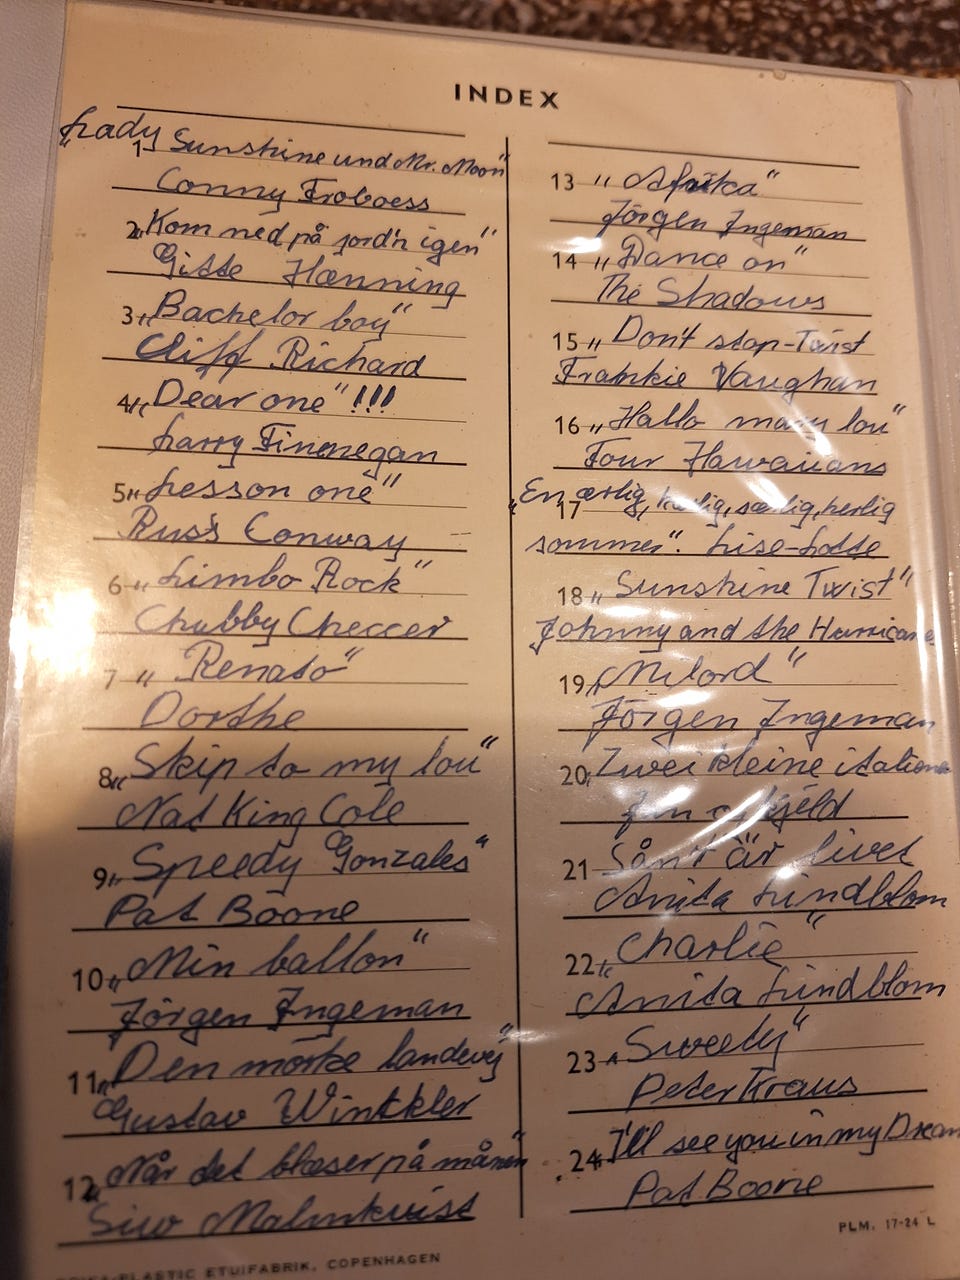 INDEX
„Lady
1 Sunshine und Mr. Moon"
Conny Froboess
2 „Kom ned på jord'n igen"
Gitte Hænning
3 „Bachelor boy"
Cliff Richard
4 „Dear one" !!!
Larry Finnegan
5 „Lesson one"
Russ Conway
6 „Limbo Rock"
Chubby Checcer
7 „Renato"
Dorthe
8 „Skip to my lou"
Nat King Cole
9 „Speedy Gonzales"
Pat Boone
10 „Min ballon"
Jörgen Ingeman
11 „Den mörke landevej"
Gustav Winkkler
12 „Når det blæser på månen"
Siw Malmkvist
13 „Afrika"
Jörgen Ingeman
14 „Dance on"
The Shadows
15 „Don't stop-Twist
Frankie Vaughan
16 „Hallo mary lou"
Four Hawaiians
„En ærlig,
17 kærlig, særlig, herlig
sommer". Lise-Lotte
18 „Sunshine Twist"
Johnny and the Hurricane
19 „Milord"
Jörgen Ingeman
20 „Zwei kleine italiener
Jan og Kjeld
21 Sån't är livet
Anita Lindblom
22 „Charlie"
Anita Lindblom
23 „Sweety"
Peter Kraus
24 I'll see you in my Dream
Pat Boone
PLM. 17-24 L
PLASTIC ETUIFABRIK, COPENHAGEN